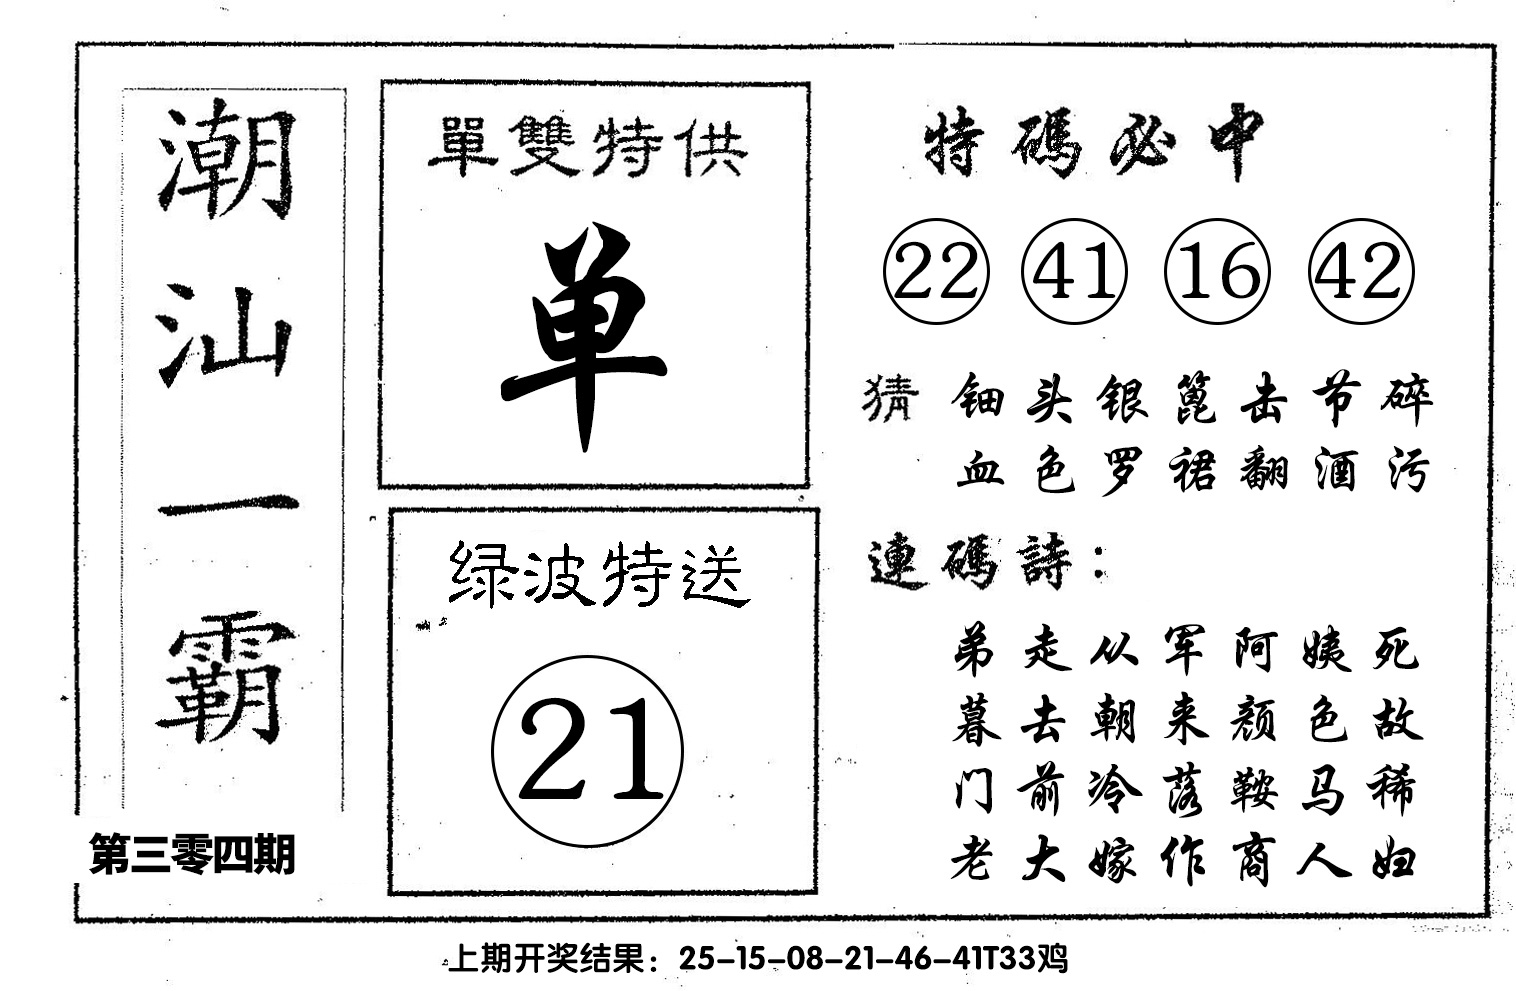 潮汕一霸
第三零四期
單雙特供
单
绿波特送
21
特碼必中
22 41 16 42
猜 钿头银篦击节碎
血色罗裙翻酒污
連碼詩：
弟走从军阿姨死
暮去朝来颜色故
门前冷落鞍马稀
老大嫁作商人妇
上期开奖结果：25-15-08-21-46-41T33鸡